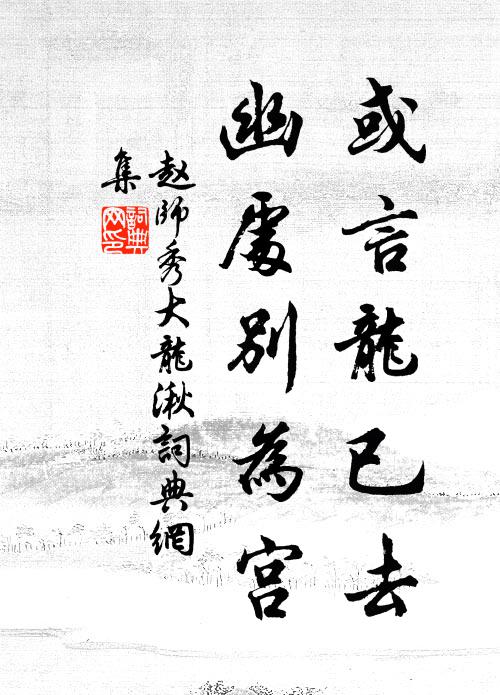 或言龍已去
幽處別為宮
赵師秀大龍湫詞典網
集
詞典
网印